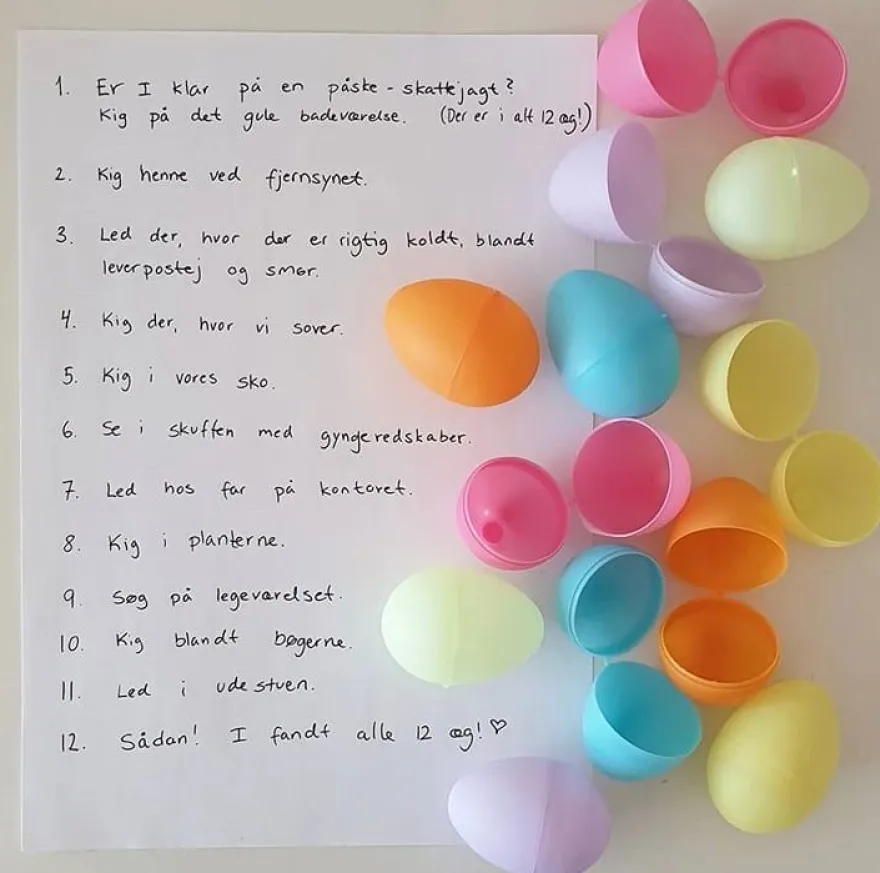 1. Er I klar på en påske-skattejagt?
Kig på det gule badeværelse. (Der er i alt 12 æg!)
2. Kig henne ved fjernsynet.
3. Led der, hvor der er rigtig koldt, blandt
leverpostej og smør.
4. Kig der, hvor vi sover.
5. Kig i vores sko.
6. Se i skuffen med gyngeredskaber.
7. Led hos far på kontoret.
8. Kig i planterne.
9. Søg på legeværelset.
10. Kig blandt bøgerne.
11. Led i udestuen.
12. Sådan! I fandt alle 12 æg! ♡